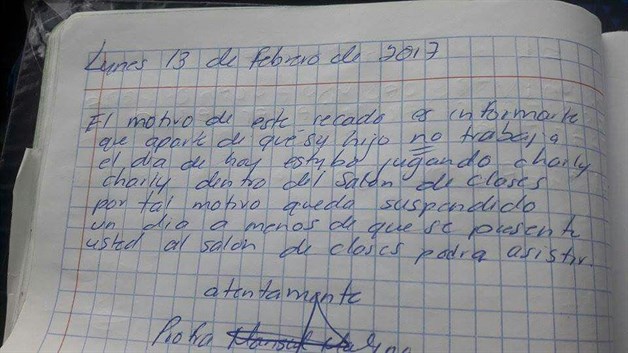 Lunes 13 de febrero de 2017
El motivo de este recado es informarle
que aparte de que su hijo no trabaja
el dia de hoy estuba jugando charly
charly dentro del salon de clases
por tal motivo queda suspendido
un dia a menos de que se presente
usted al salon de clases podra asistir.
atentamente
Profra